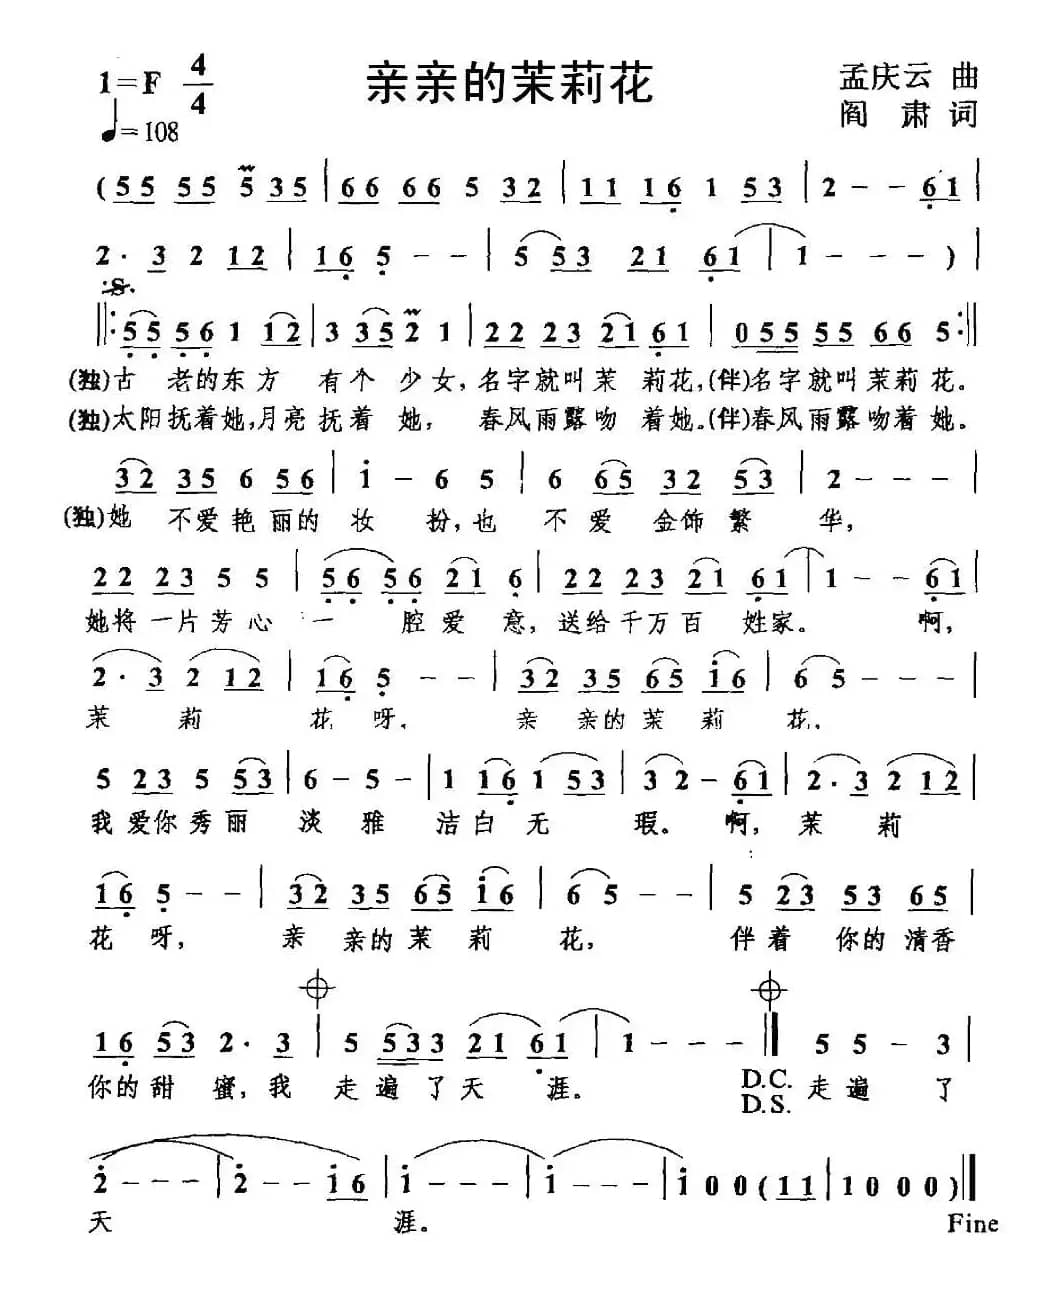 亲亲的茉莉花
1=F 4/4
孟庆云 曲
♩=108
阎 肃 词
(55 55 5 35 | 66 66 5 32 | 11 16 1 53 | 2 - - 61 |
2· 3 2 12 | 16 5 - - | 5 53 21 61 | 1 - - - ) |
‖: 55 56 1 12 | 3 35 2 1 | 22 23 21 61 | 0 55 55 66 5 :‖
(独)古 老的东方 有个 少女,名字就叫茉 莉花,(伴)名字就叫茉莉花。
(独)太阳抚着她,月亮抚着 她, 春风雨露吻 着她。(伴)春风雨露吻着她。
32 35 6 56 | i - 6 5 | 6 65 32 53 | 2 - - - |
(独)她 不爱艳丽的妆 扮,也 不 爱 金饰繁 华,
22 23 5 5 | 56 56 21 6 | 22 23 21 61 | 1 - - 61 |
她将一片芳心 一 腔爱 意,送给千万百 姓家。 啊,
2· 3 2 12 | 16 5 - - | 32 35 65 i6 | 6 5 - - - |
茉 莉 花呀, 亲 亲的茉 莉 花,
5 23 5 53 | 6 - 5 - | 1 16 1 53 | 32 - 61 | 2· 3 2 12 |
我爱你秀丽 淡 雅 洁白无 瑕。 啊,茉 莉
16 5 - - | 32 35 65 i6 | 6 5 - - | 5 23 53 65 |
花 呀, 亲 亲的茉 莉 花, 伴着 你的清香
16 53 2· 3 | 5 533 21 61 | 1 - - - ‖ 5 5 - 3 |
你的甜 蜜,我 走遍了天 涯。 D.C. 走遍 了
D.S.
2 - - - | 2 - - i6 | i - - - | i - - - | i 0 0 (11 | 1 0 0 0) ‖
天 涯。 Fine